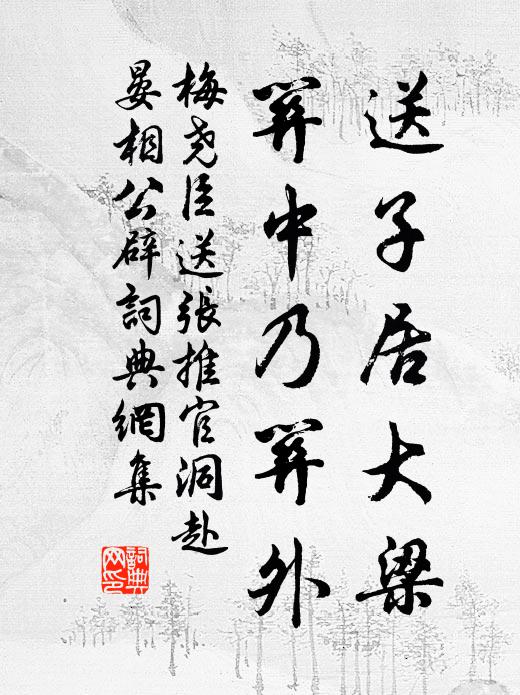 送子居大梁
羿中乃羿外
梅尧臣送張推官洞赴
晏相公辟詞典網集
詞典
网印